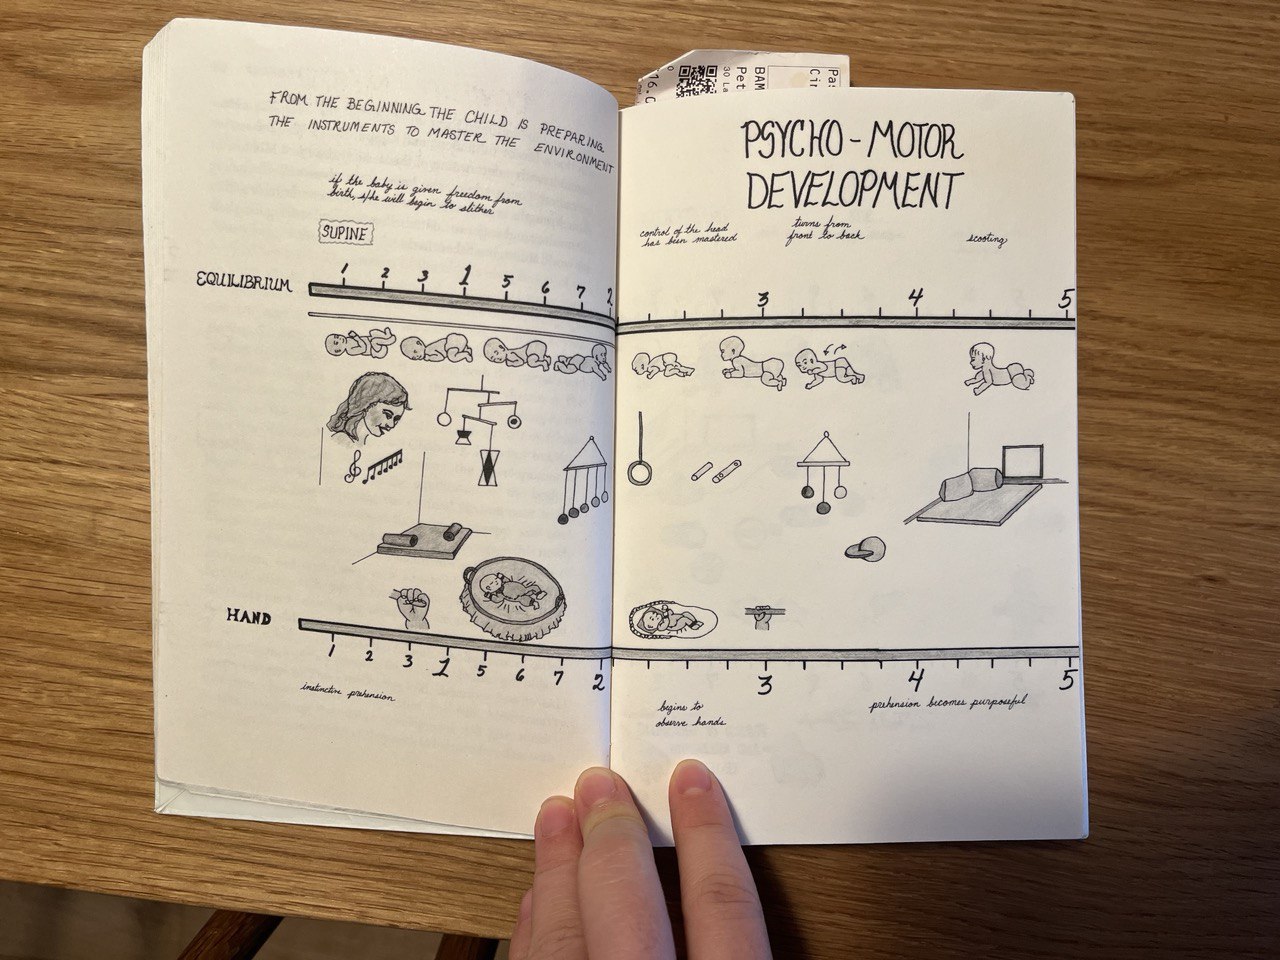 FROM THE BEGINNING THE CHILD IS PREPARING
THE INSTRUMENTS TO MASTER THE ENVIRONMENT
if the baby is given freedom from
birth, s/he will begin to slither
SUPINE
EQUILIBRIUM
1 2 3 1 5 6 7 2
HAND
1 2 3 1 5 6 7 2
instinctive prehension
PSYCHO-MOTOR
DEVELOPMENT
control of the head
has been mastered
turns from
front to back
scooting
3 4 5
3 4 5
begins to
observe hands
prehension becomes purposeful
BAM
Pet
30 La